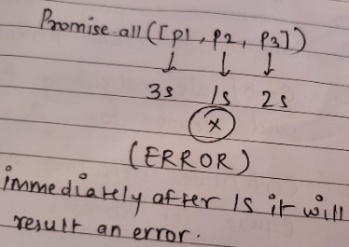 Promise.all([p1, p2, p3])
↓ ↓ ↓
3s 1s 2s
x
(ERROR)
immediately after 1s it will
result an error.